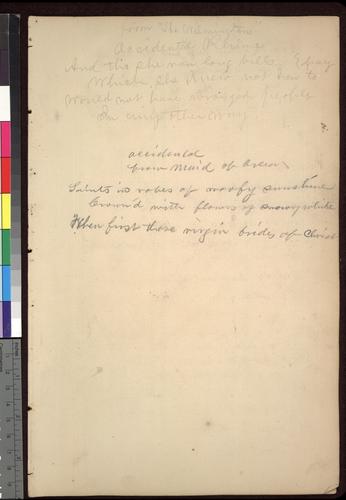 from "The Newingtons"
Accidental Rhyme
And tho she ran long bills to pay
Which she knew not how to
Would not have wronged people
In any other way
accidental
from Maid of
Saints in robes of woofy sunshine
Crown'd with flowers of snowy white
When first those virgin brides of Christ